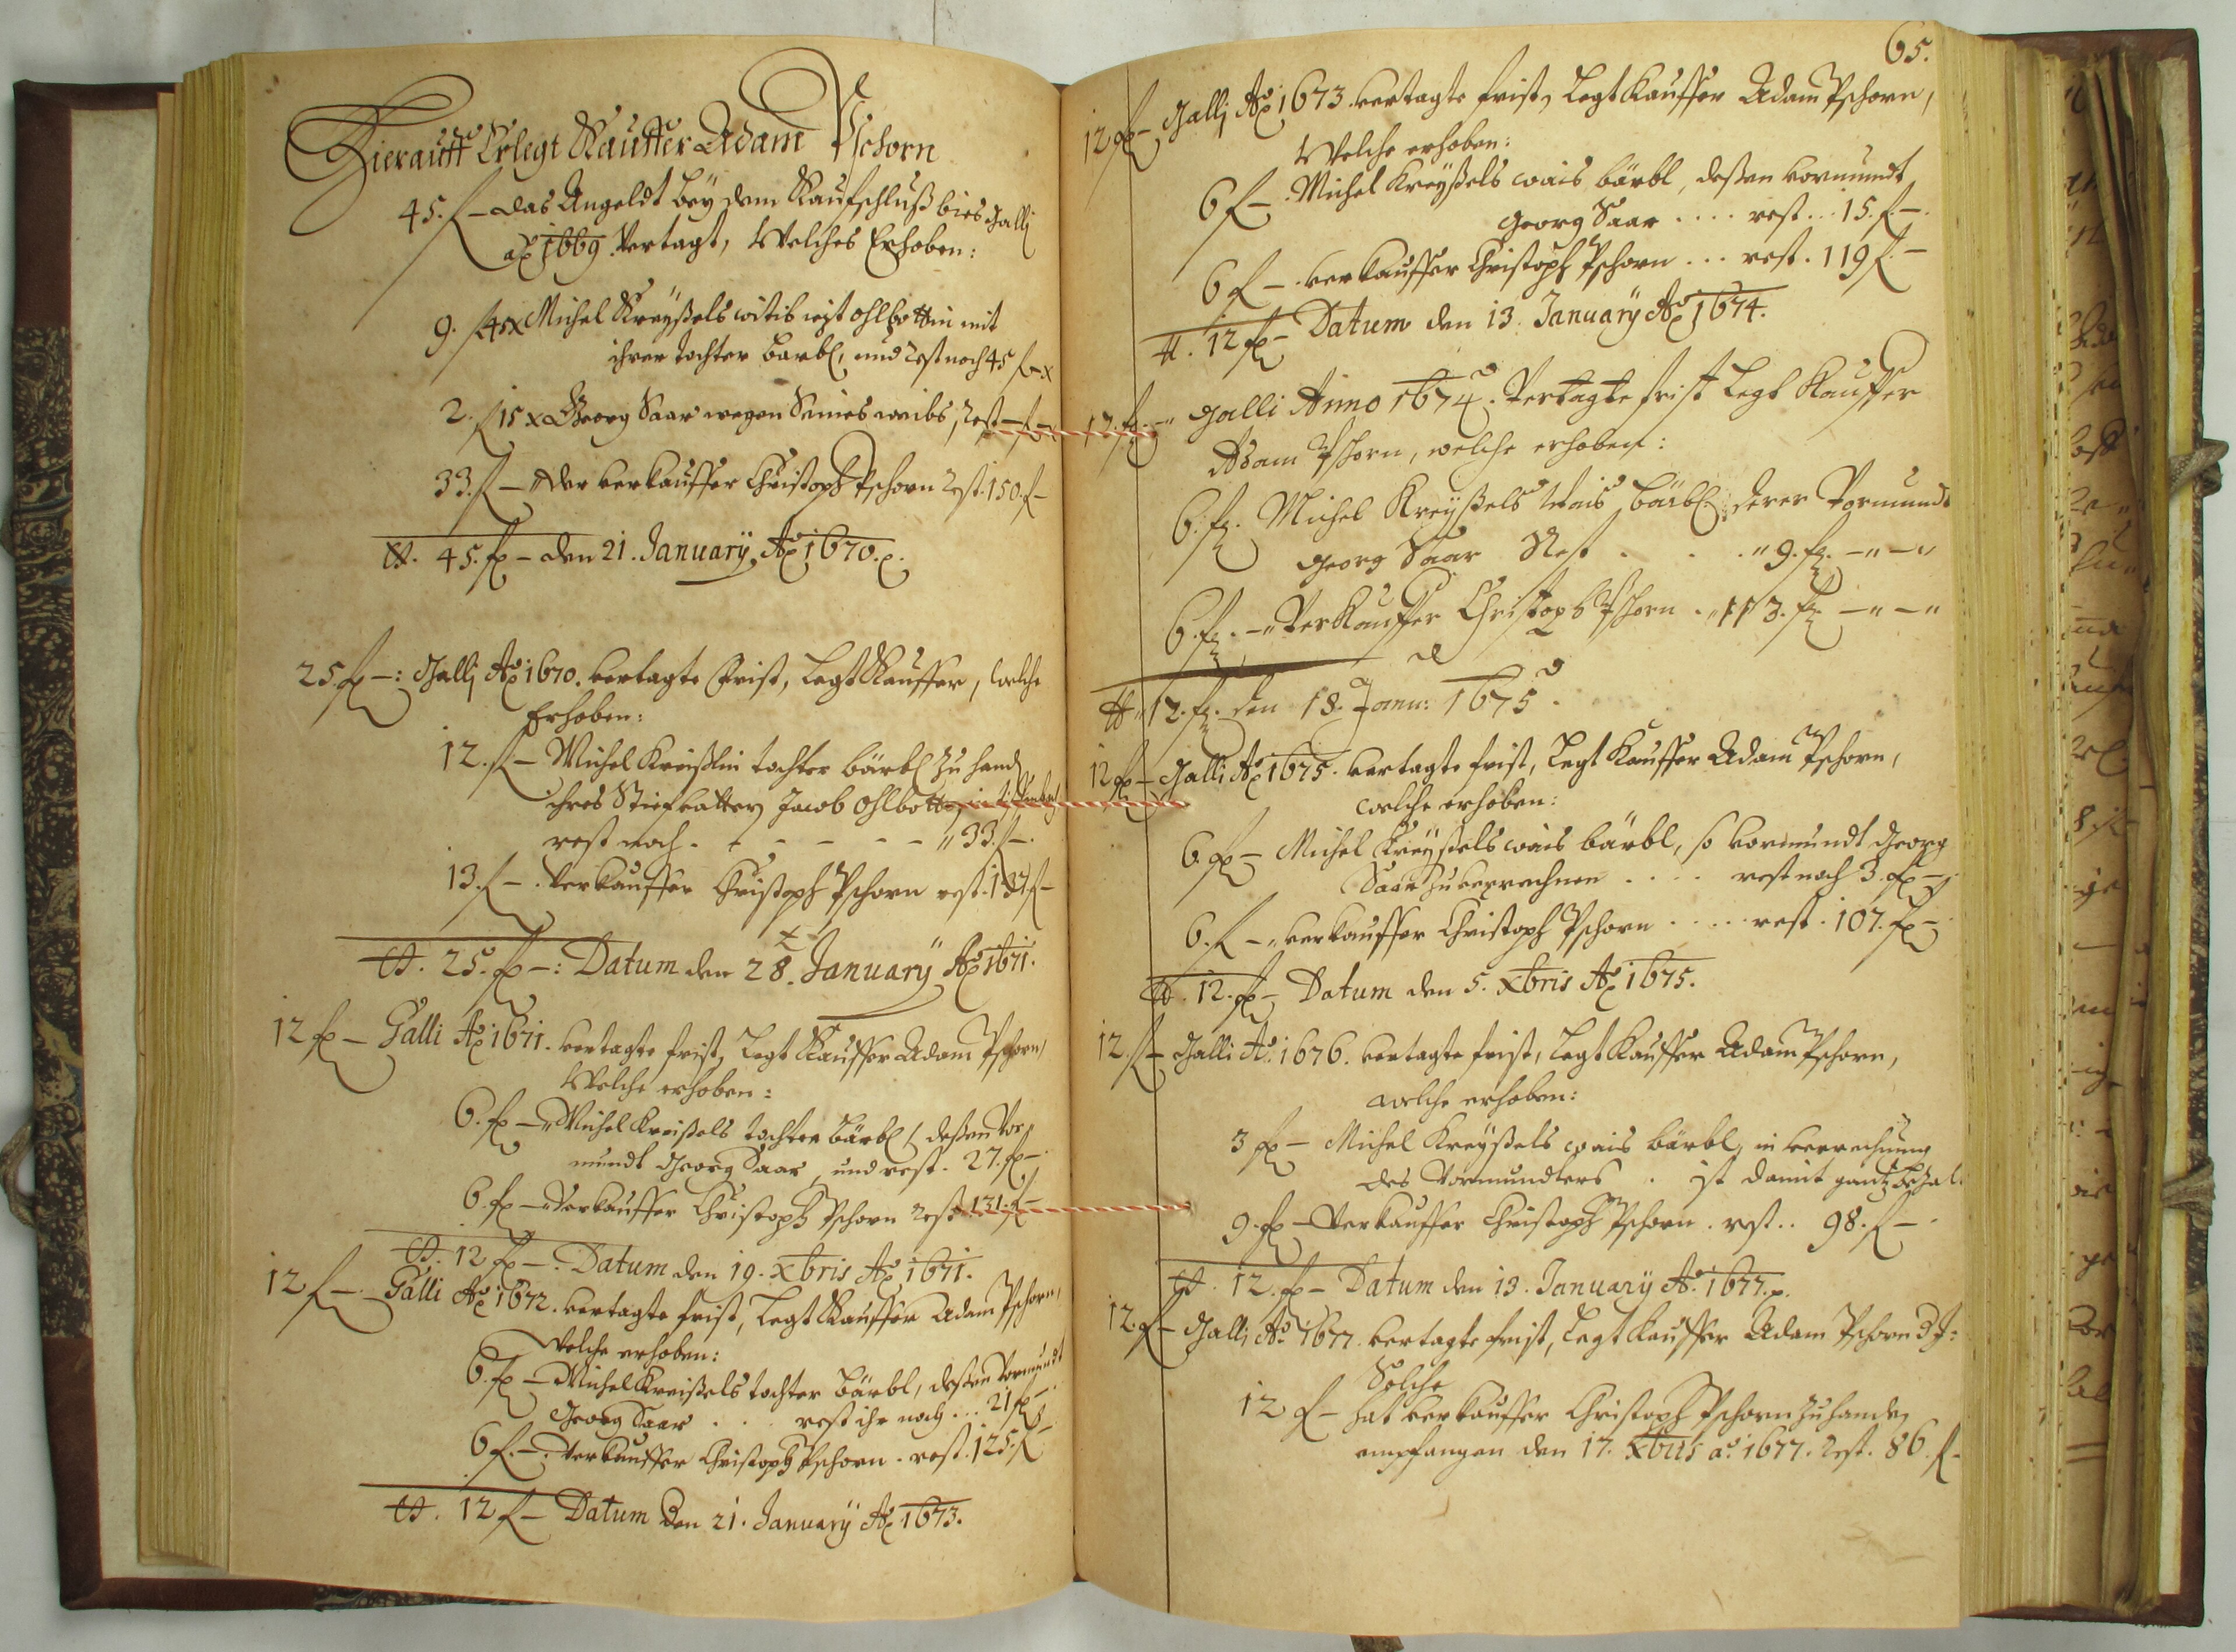 Hierauff Erlegt Kauffer Adam Pschorn
45. f – das Angeldt bey dem Kaufschluß bies Galli
ao 1669. Vertagt, Welches Erhoben:
9. f 45 x Michel Kreyßels witib iezt Ohlbottin mit
ihrer tochter Barbl, und Rest noch 45 f – x
2. f 15 x Georg Saar wegen Seines weibs, Rest – f – x
33. f – Der verkauffer Christoph Pschorn Rest. 150. f –
45. fl – den 21. January Ao 1670.
25. fl –: Galli Ao 1670. vertagte Frist, Legt Kauffer, Welche
Erhoben:
12. fl – Michel Kreißlin tochter bärbl zu hand
ihres Stiefvatters Jacob Ohlbotts in
rest noch . – – – – – „ 33. fl –.
13. f – . Verkauffer Christoph Pschorn rest. 137 f –
25. fl –: Datum den 28. January Ao 1671.
12 fl – Galli Ao 1671. vertagte frist, Legt Kauffer Adam Pschorn,
Welche erhoben:
6. fl – „ Michel Kreißels tochter Bärbl, deßen Vor-
mundt Georg Saar, und rest. 27. fl –.
6. fl – „ Verkauffer Christoph Pschorn Rest 131. f –
12 fl –. Datum den 19. Xbris Ao 1671.
12 f –. Galli Ao 1672. vertagte frist, Legt Kauffer Adam Pschorn,
Welche erhoben:
6. fl – Michel Kreißels tochter bärbl, deßen Vormundt
Georg Saar . . . rest ihr noch ... 21 fl –.
6 f. – . Verkauffer Christoph Pschorn . rest. 125. f –
12 f – Datum Den 21. January Ao 1673.
65.
12 fl – Galli Ao 1673. vertagte frist, Legt Kauffer Adam Pschorn,
Welche erhoben:
6 f – . Michel Kreyßels wais bärbl, deßen vormundt
Georg Saar .... rest ... 15. f. –.
6 f – . verkauffer Christoph Pschorn ... rest . 119 f. –
12 fl – Datum den 13. January Ao 1674.
12. fl. – „ Galli Anno 1674. Vertagte frist Legt Kauffer
Adam Pschorn, welche erhoben:
6. fl. Michel Kreyßels Wais Bärbl. derer Vormundt
Georg Saar Rest . . . „ 9. fl. – „ – „
6. fl. – „ Verkauffer Christoph Pschorn . „ 113. fl – „ – „
12. fl. den 18. Janu: 1675.
12 fl – Galli Ao 1675. vertagte frist, Legt Kauffer Adam Pschorn,
welche erhoben:
6. fl – Michel Kreyßels wais bärbl, so vormundt Georg
Saar zuverrechnen .... rest noch 3. fl –.
6. f – „ verkauffer Christoph Pschorn ..... rest . 107. fl –.
12. fl – Datum den 5. Xbris Ao 1675.
12. f – Galli Ao. 1676. vertagte frist, Legt Kauffer Adam Pschorn,
welche erhoben:
3 fl – Michel Kreyßels wais bärbl, in verrechnung
des Vormundters . ist damit gantz bezal.
9. fl – Verkauffer Christoph Pschorn . rest .. 98. f – .
12. fl – Datum den 13. January Ao. 1677.
12. f – Galli Ao. 1677. vertagte frist, Legt Kauffer Adam Pschorn
Solche
12 f – hat verkauffer Christoph Pschorn zuhanden
empfangen den 17. Xbris ao. 1677. Rest. 86. f –